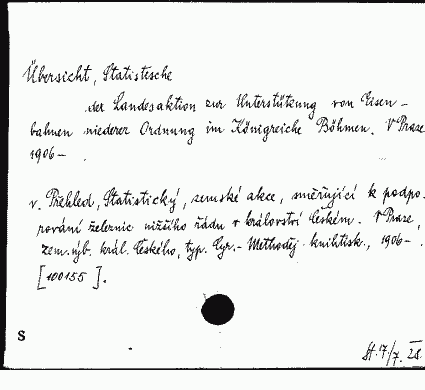 Übersicht, Statistische
der Landesaktion zur Unterstützung von Eisen-
bahnen niederer Ordnung im Königreiche Böhmen. V Praze
1906- .
v. Přehled, Statistický, zemské akce, směřující k podpo-
rování železnic nižšího řádu v království Českém. V Praze,
zem. výb. král. Českého, typ. Cyr.-Methoděj. knihtisk., 1906- .
[100155].
S